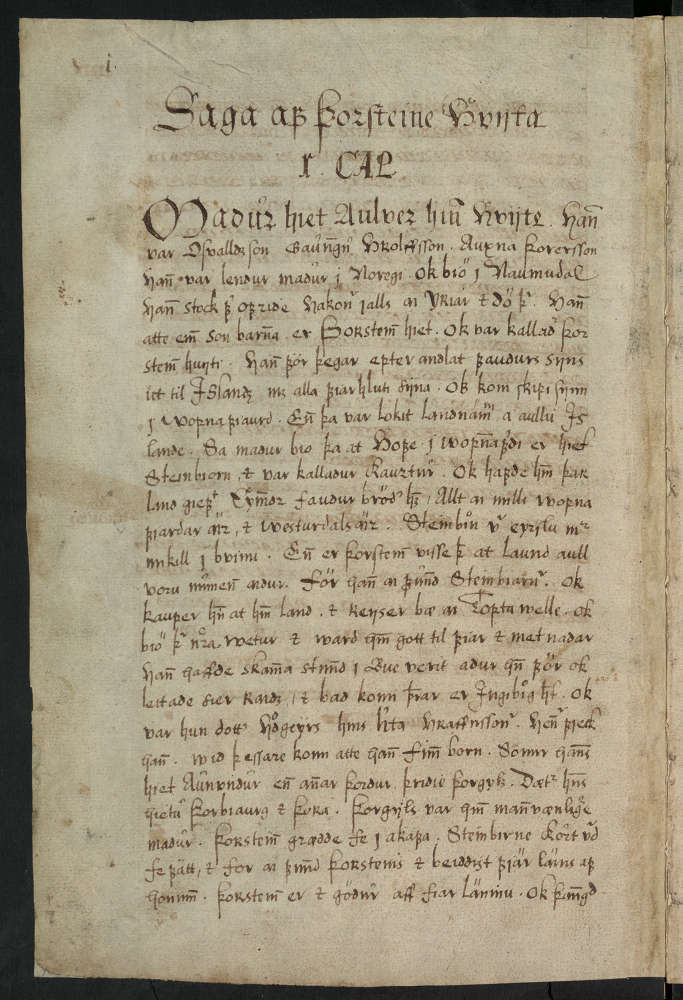 i.
Saga af Þorsteine Hvijta
1. CAP
Madur hiet Aulver hinn hvijte. hann
var Osvalldz son Gaungu Hrolfsson. Auxna Þorersson
hann var lendur madur j Noregi. Ok bio j Naumudal
hann stock fyrir ofride Hakonar jalls ai Yriar & do þar. hann
atte einn son barna er Þorsteinn hiet. Ok var kallad Þor
steinn hvijti. hann fór þegar epter andlat faudurs sijns
ut til Islandz med alla fiarhluti sijna. Ok kom skipi sijnu
j Vopnafiaurd. En þa var lokit Landnam a aullu Is
lande. Sa madur bio þa at Hofe j vopnafirdi er hiet
Steinbiorn, & var kalladur kaurtur. Ok hafde honum þar
land giefit Eyvindr faudur brodir hans, Allt ai milli vopna
fiardar ár, & vesturdals ár. Steinbiorn var eyzslu madr
mikill j bvinu. En er Þorsteinn visse þat at Laund aull
voru numen adur. Fór hann ai fund Steinbiarnar. Ok
kauper hann at honum land. & Reyser bæ ai Toptavelle. ok
bió þar nockra vetur & vard honum gott til fiar & metnadar
hann haffde skamma stund j Bue verit adur hann fór ok
leitade sier Rádz, & bad konu þeirar er Ingibiorg het. Ok
var hun dotter Hodgeyrs hins hvita Hrafnssonar. hennar fieck
hann. Vid þessare konu atte hann fimm born. Sonur hans
hiet Aunundur en annar Þordur. þridie Þorgils. Dætur hans
hietu Þorbiaurg & Þora. Þorgyls var hinn mannvænlegste
madur. Þorsteinn grædde fe j akafa. Steinbirne kort vard
fe fátt, & for ai fund Þorsteins & beiddist fiár láns af
honum. Þorsteinn er & gódur aff fiar láninu. Ok þangad